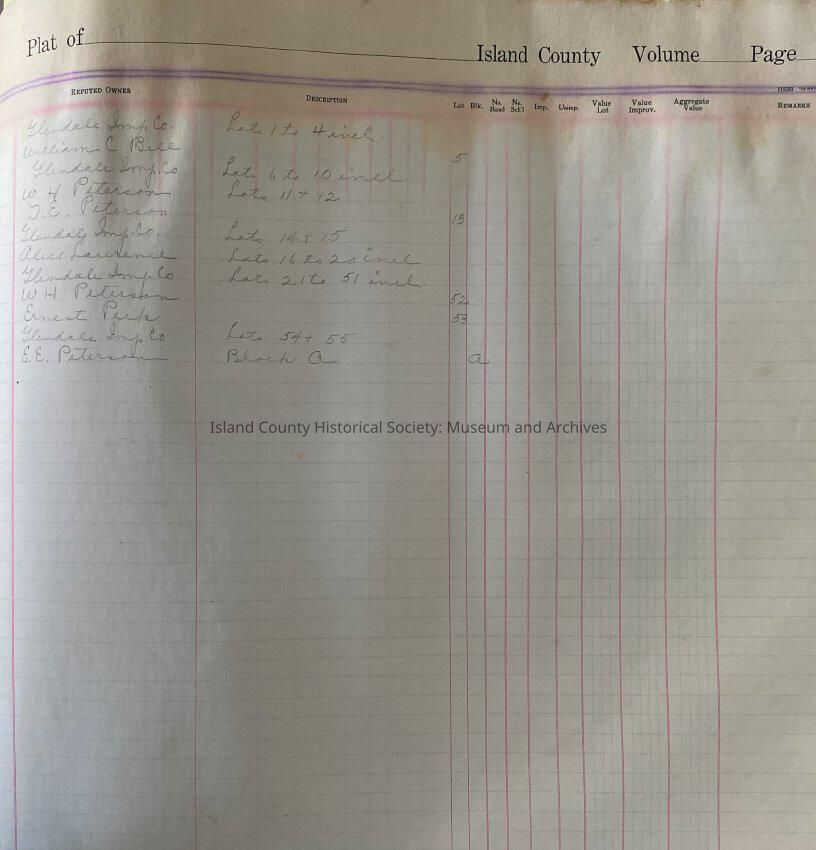 Plat of Island County Volume Page
REPUTED OWNER DESCRIPTION Lot Blk. No. Road No. Sch'l Imp. Unimp. Value Lot Value Improv. Aggregate Value REMARKS
Glendale Imp. Co. Lots 1 to 4 incl.
William C Bell 5
Glendale Imp. Co Lots 6 to 10 incl.
W H Peterson Lots 11 + 12
T. E. Peterson 13
Glendale Imp. Co. Lots 14 + 15
Alice Lawrence Lots 16 to 20 incl
Glendale Imp Co. Lots 21 to 51 incl.
W H Peterson 52
Ernest 53
Glendale Imp Co Lots 54 + 55
E.E. Peterson Block A a
Island County Historical Society: Museum and Archives